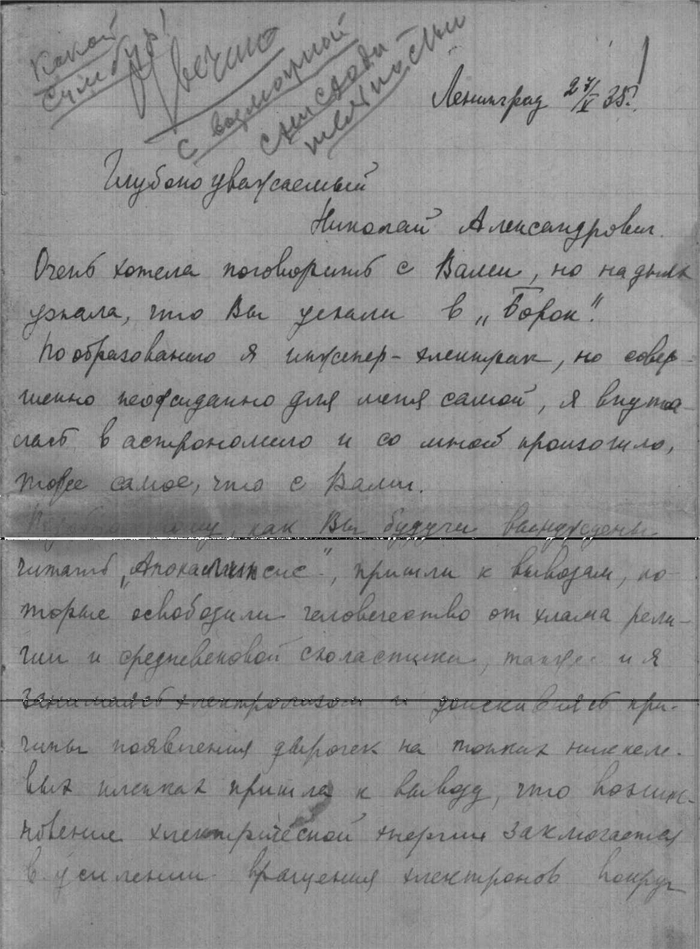 Какой
сумбур!
Вечно
с возможной
точностью
Ленинград 27/V 35.
Глубокоуважаемый
Николай Александрович.
Очень хотела поговорить с Вами, но на днях
узнала, что Вы уехали в „Борок".
По образованию я инженер-электрик, но совер-
шенно неожиданно для меня самой, я впута-
лась в астрономию и со мной произошло,
тоже самое, что с Вами.
как Вы будучи вынуждены
читать „Апокалипсис", пришли к выводам, ко-
торые освободили человечество от хлама рели-
гии и средневековой схоластики, также и я
занимаясь электролизом и доискиваясь при-
чины появления дырочек на тонких никкеле-
вых пленках пришла к выводу, что возник-
новение электрической энергии заключается
в усилении вращения электронов вокруг